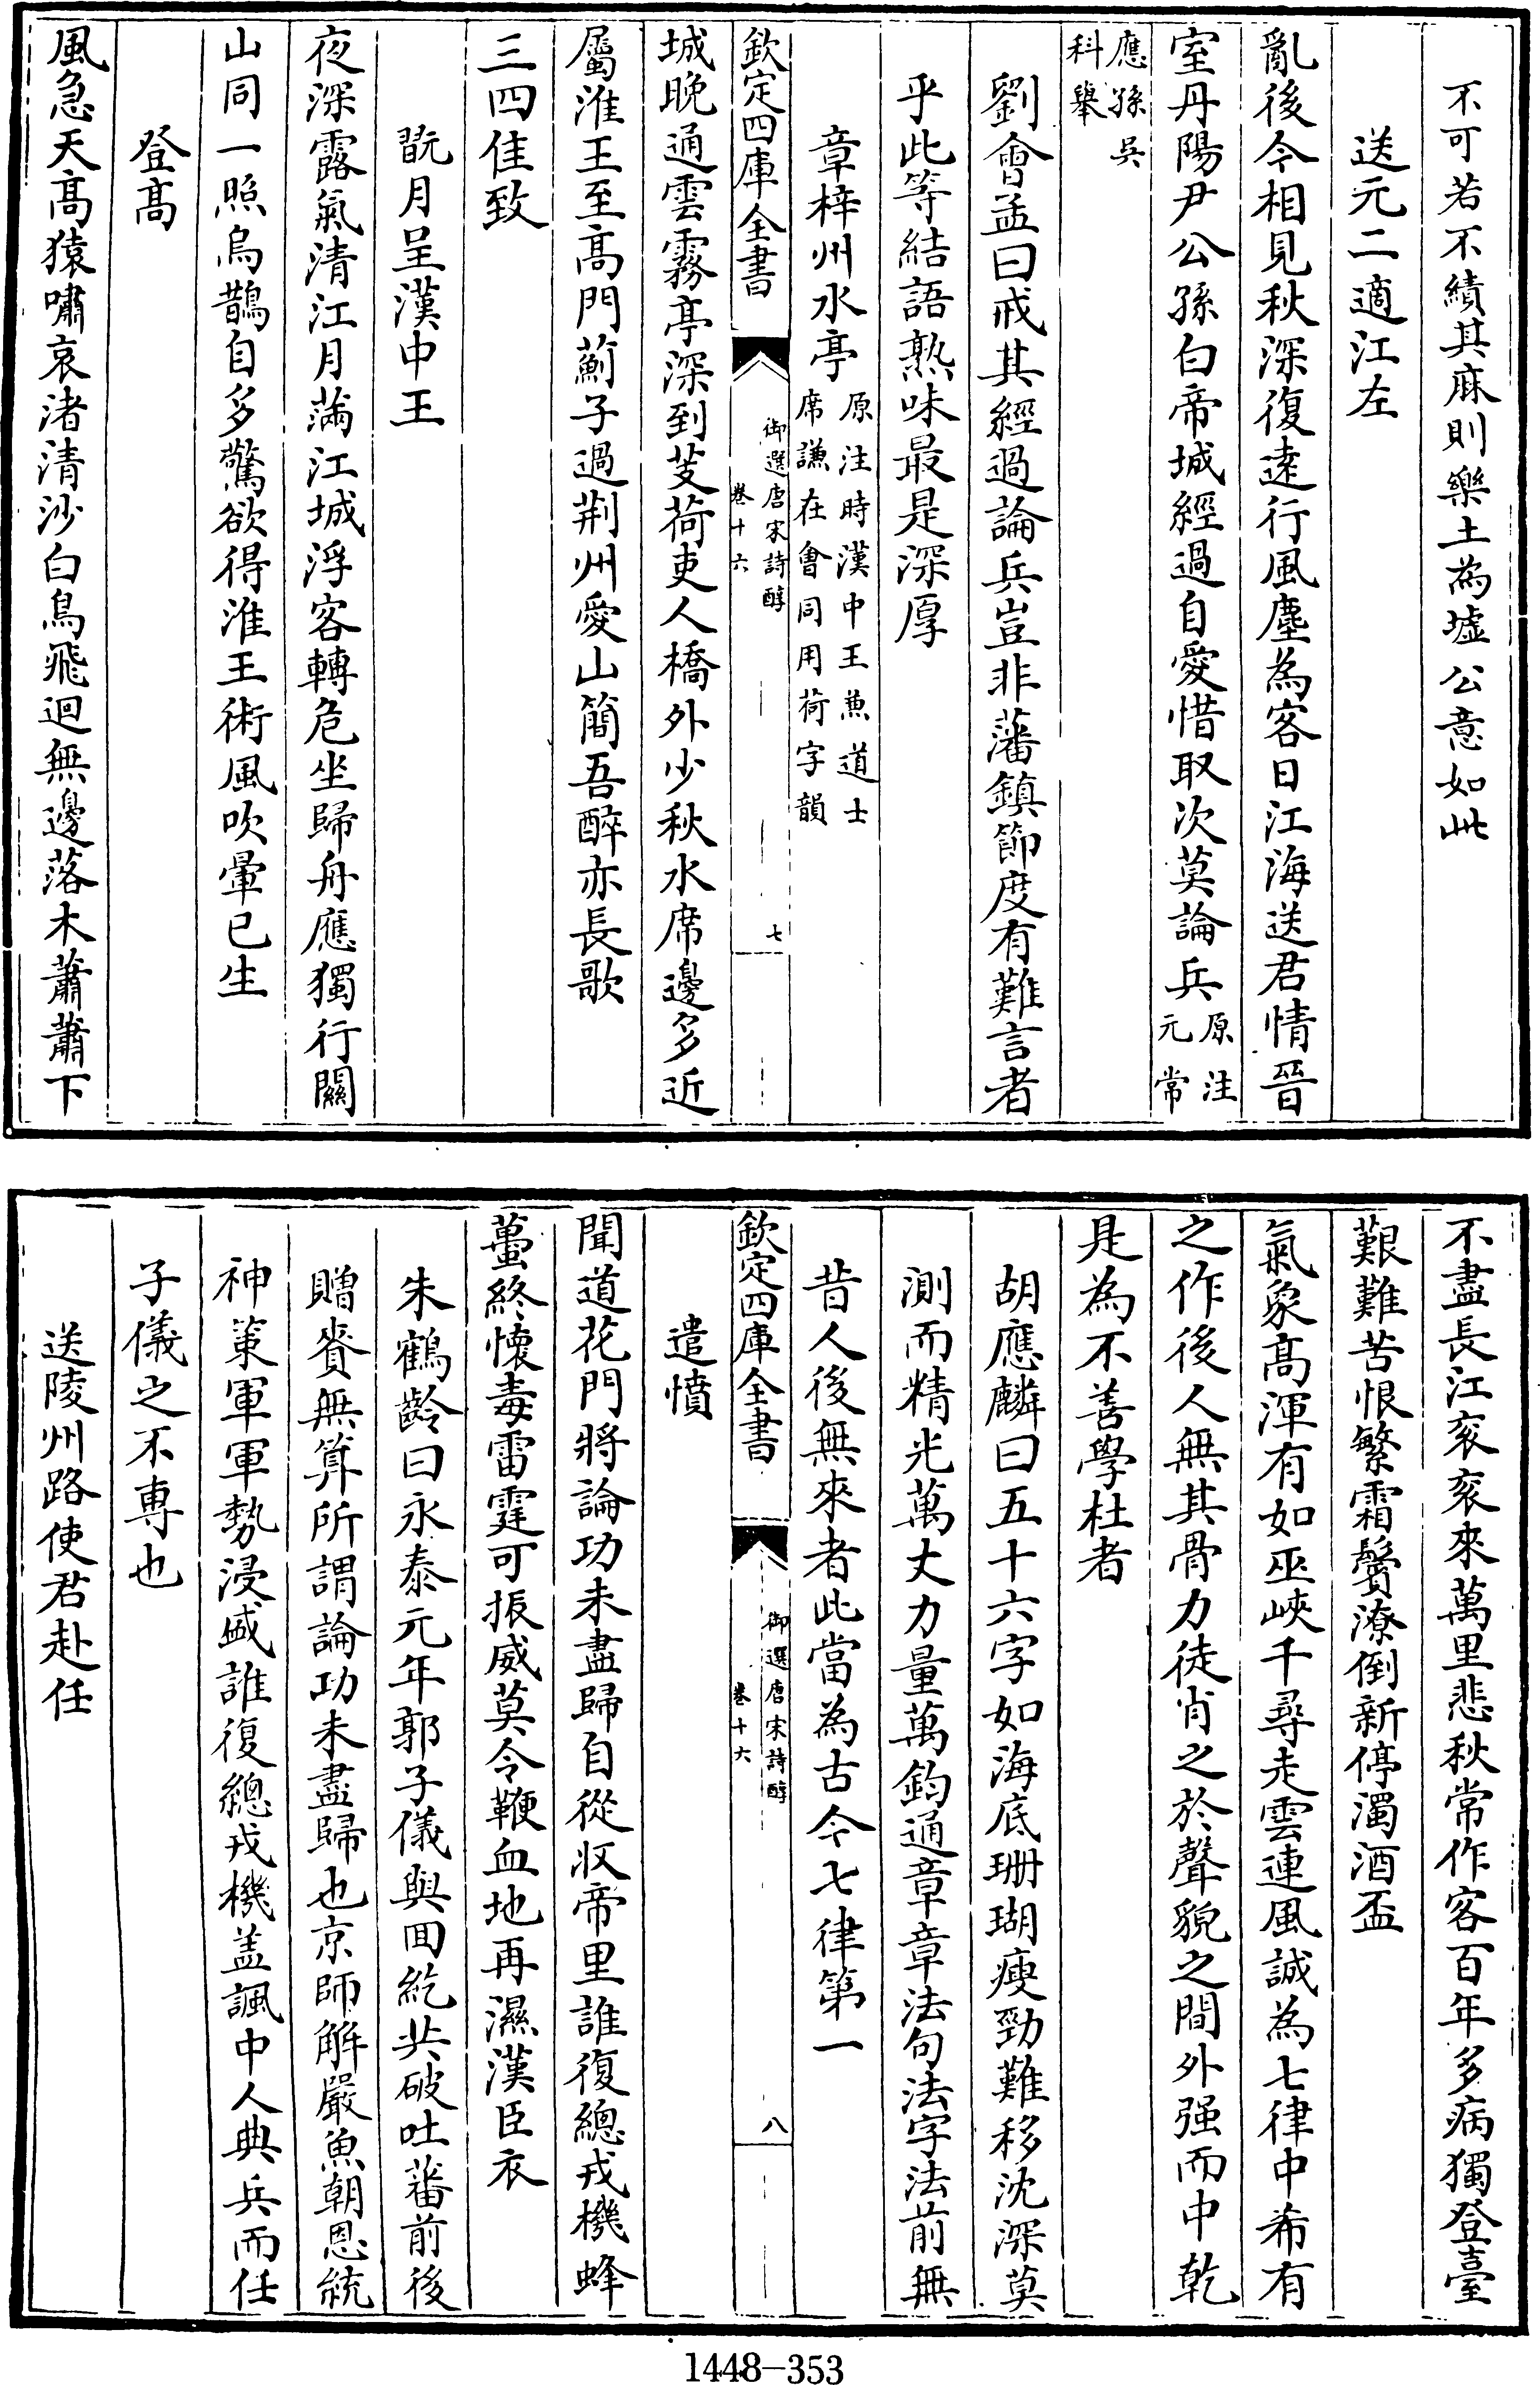 不可若不績其麻則樂土為墟公意如此
送元二適江左
亂後今相見秋深復遠行風塵為客日江海送君情晉
室丹陽尹公孫白帝城經過自愛惜取次莫論兵原注元常
應孫吳科舉
劉會孟曰戒其經過論兵豈非藩鎮節度有難言者
乎此等結語熟味最是深厚
章梓州水亭原注時漢中王兼道士席謙在會同用荷字韻
欽定四庫全書
御選唐宋詩醇
卷十六
七
城晚通雲霧亭深到芰荷吏人橋外少秋水席邊多近
屬淮王至高門薊子過荆州愛山簡吾醉亦長歌
三四佳致
翫月呈漢中王
夜深露氣清江月滿江城浮客轉危坐歸舟應獨行關
山同一照烏鵲自多驚欲得淮王術風吹暈已生
登高
風急天高猿嘯哀渚清沙白鳥飛迴無邊落木蕭蕭下
不盡長江衮衮來萬里悲秋常作客百年多病獨登臺
艱難苦恨繁霜鬢潦倒新停濁酒盃
氣象高渾有如巫峽千尋走雲連風誠為七律中希有
之作後人無其骨力徒肖之於聲貌之間外强而中乾
是為不善學杜者
胡應麟曰五十六字如海底珊瑚瘦勁難移沈深莫
測而精光萬丈力量萬鈞通章章法句法字法前無
昔人後無來者此當為古今七律第一
欽定四庫全書
御選唐宋詩醇
卷十六
八
遣憤
聞道花門將論功未盡歸自從收帝里誰復總戎機蜂
蠆終懷毒雷霆可振威莫令鞭血地再濕漢臣衣
朱鶴齡曰永泰元年郭子儀與回紇共破吐蕃前後
贈賚無算所謂論功未盡歸也京師解嚴魚朝恩統
神策軍軍勢浸盛誰復總戎機盖諷中人典兵而任
子儀之不專也
送陵州路使君赴任
1448-353